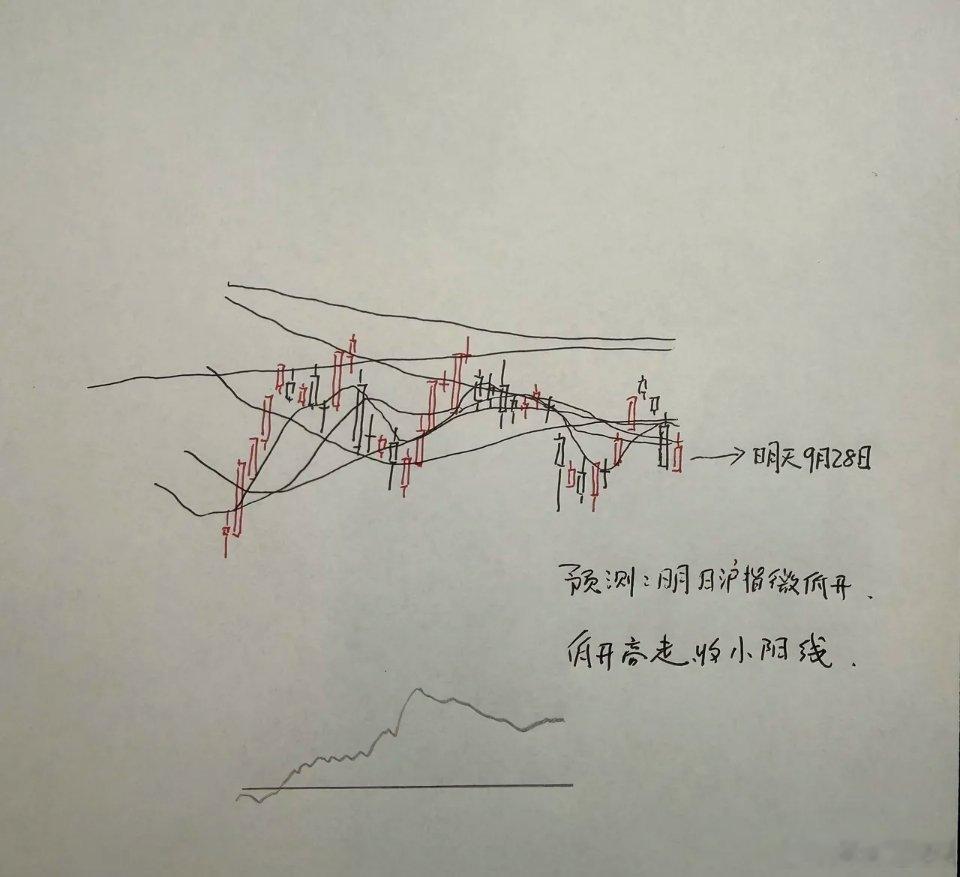 明天9月28日
预测:明日沪指微低开.
低开高走.收小阳线.